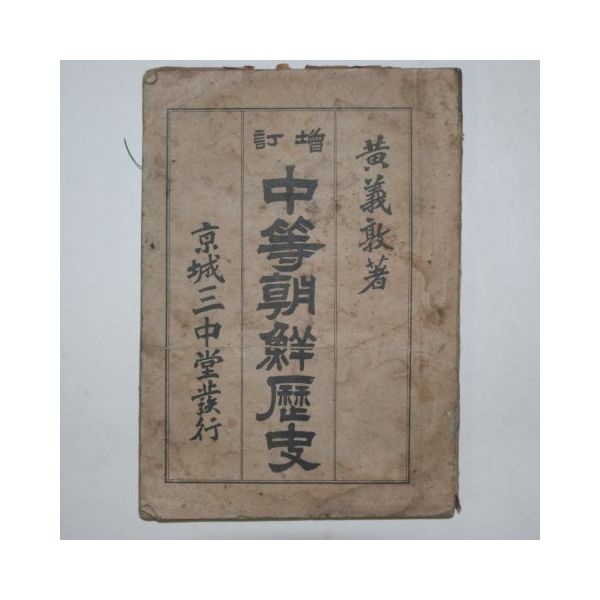 黃義敦著
增訂
中等朝鮮歷史
京城三中堂發行